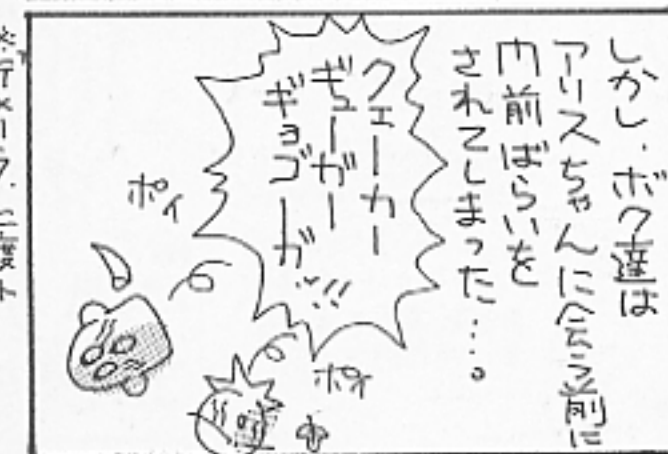 しかし、ボク達は
アリスちゃんに会う前に
門前ばらいを
されてしまった…。
クェーカー
ギューガー
ギョゴーガ!!
ポイ
ポイ